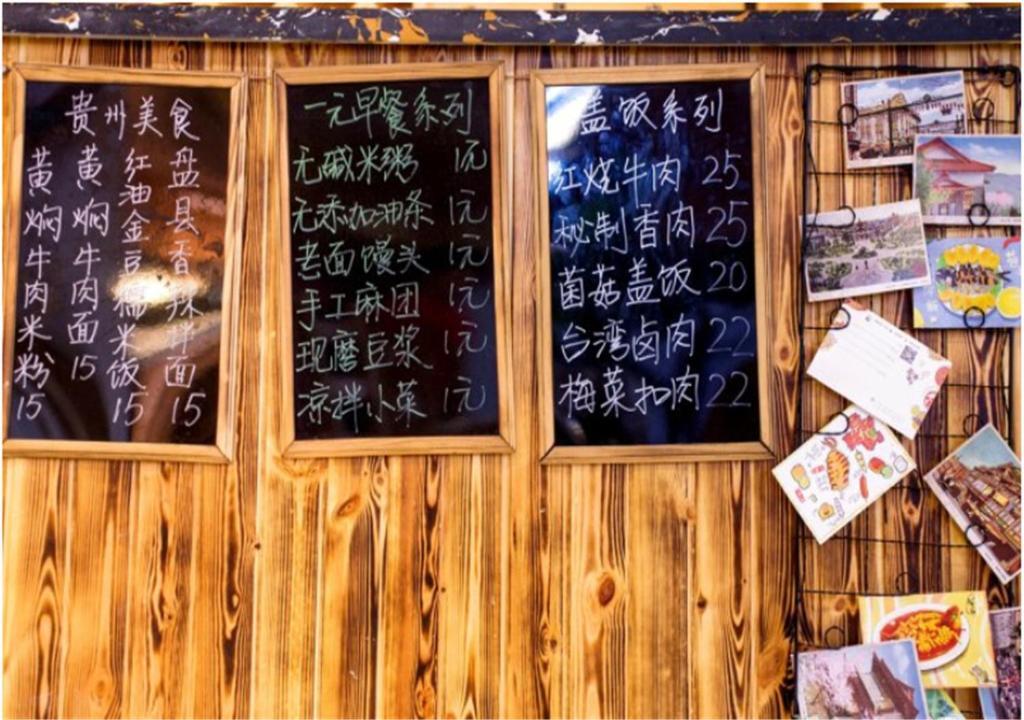 贵州美食
盘县香辣拌面15
红油金豆糯米饭15
黄焖牛肉面15
黄焖牛肉米粉15
一元早餐系列
无碱米粥 1元
无添加油条 1元
老面馒头 1元
手工麻团 1元
现磨豆浆 1元
凉拌小菜 1元
盖饭系列
红烧牛肉 25
秘制香肉 25
菌菇盖饭 20
台湾卤肉 22
梅菜扣肉 22